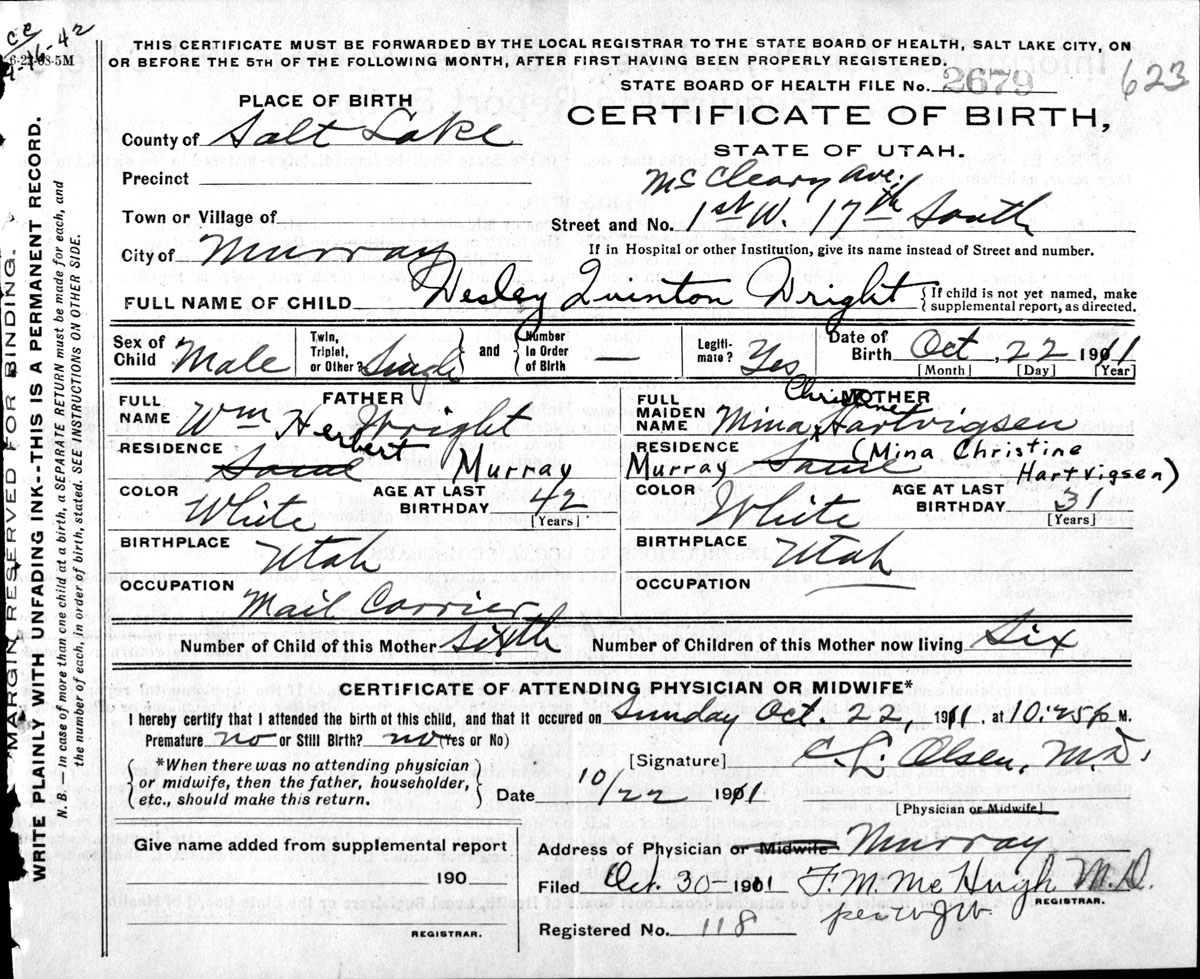 ce
4-16-42
6-22-08-5M
THIS CERTIFICATE MUST BE FORWARDED BY THE LOCAL REGISTRAR TO THE STATE BOARD OF HEALTH, SALT LAKE CITY, ON
OR BEFORE THE 5TH OF THE FOLLOWING MONTH, AFTER FIRST HAVING BEEN PROPERLY REGISTERED.
STATE BOARD OF HEALTH FILE No. 2679
623
PLACE OF BIRTH
CERTIFICATE OF BIRTH,
County of Salt Lake
STATE OF UTAH.
Precinct
McCleary Ave.
Town or Village of
Street and No. 1st W. 17th South
City of Murray
If in Hospital or other Institution, give its name instead of Street and number.
FULL NAME OF CHILD Wesley Quinton Wright { If child is not yet named, make
supplemental report, as directed.
Sex of Child Male Twin, Triplet, or Other? Single and Number in Order of Birth — Legitimate? Yes Date of Birth Oct, 22 1911
[Month] [Day] [Year]
FATHER
FULL NAME Wm Herbert Wright
RESIDENCE Same Murray
COLOR White AGE AT LAST BIRTHDAY 42
[Years]
BIRTHPLACE Utah
OCCUPATION Mail Carrier
MOTHER
FULL MAIDEN NAME Mina Christine Hartvigsen
RESIDENCE Murray Same (Mina Christine
Hartvigsen)
COLOR White AGE AT LAST BIRTHDAY 31
[Years]
BIRTHPLACE Utah
OCCUPATION
Number of Child of this Mother Sixth Number of Children of this Mother now living Six
CERTIFICATE OF ATTENDING PHYSICIAN OR MIDWIFE*
I hereby certify that I attended the birth of this child, and that it occured on Sunday Oct. 22, 1911, at 10:25 P M.
Premature no or Still Birth? no (Yes or No)
*When there was no attending physician
or midwife, then the father, householder,
etc., should make this return.
[Signature] C. L. Olsen, M.D.
Date 10/22 1911
[Physician or Midwife]
Give name added from supplemental report
190
REGISTRAR.
Address of Physician or Midwife Murray
Filed Oct. 30- 1911 F. M. McHugh M.D.
REGISTRAR.
per WJW.
Registered No. 118
MARGIN RESERVED FOR BINDING.
WRITE PLAINLY WITH UNFADING INK--THIS IS A PERMANENT RECORD.
N. B. — In case of more than one child at a birth, a SEPARATE RETURN must be made for each, and
the number of each, in order of birth, stated. SEE INSTRUCTIONS ON OTHER SIDE.